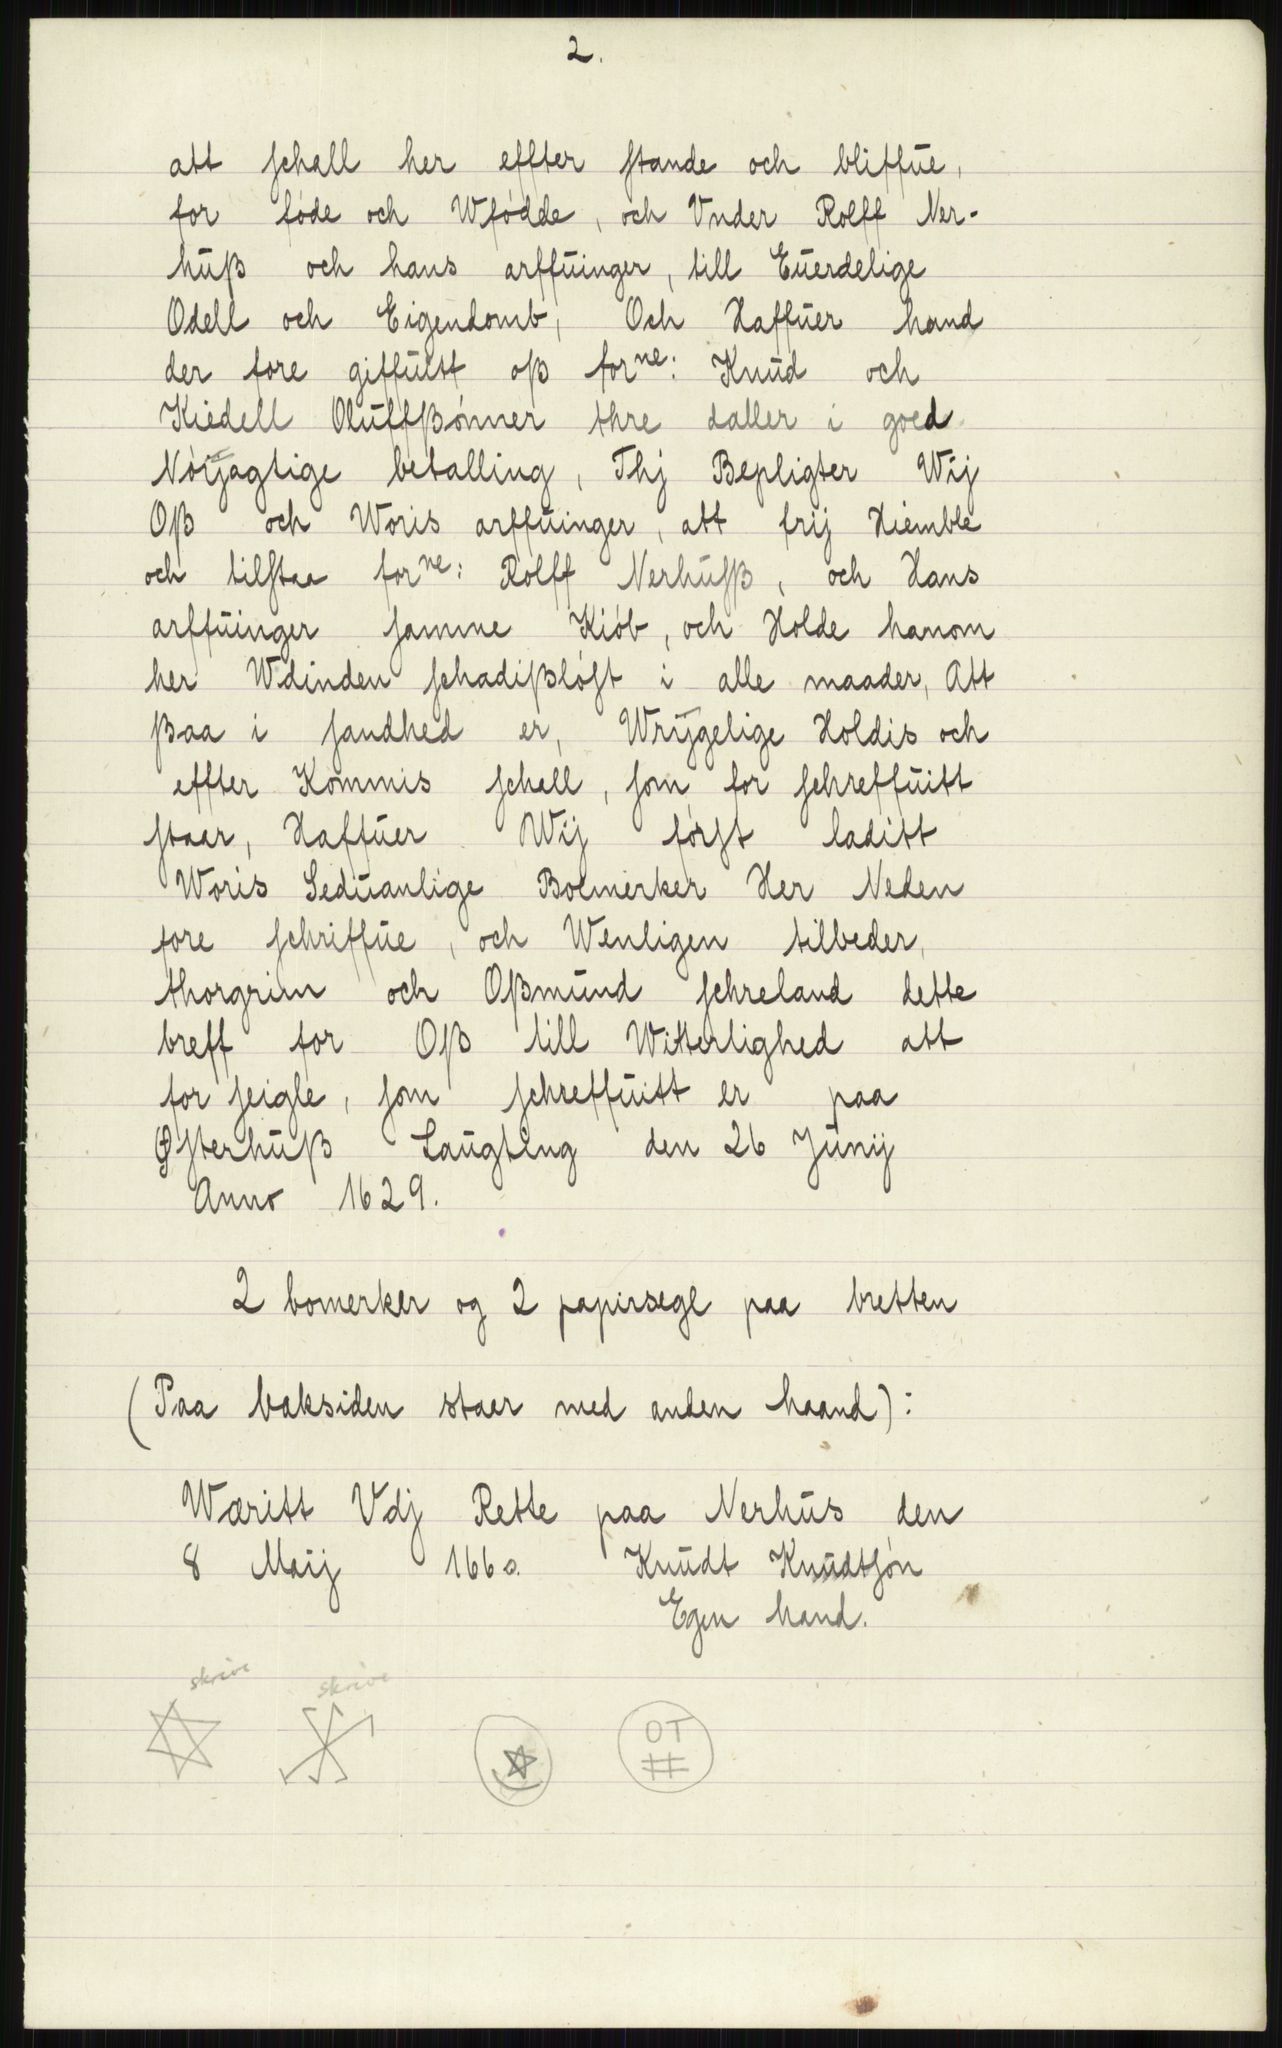 2.
att schall her effter stande och bliffue,
for føde och Wfødde, och Vnder Rolff Ner-
huß och hans arffuinger, till Euerdelige
Odell och Eigendomb, Och Haffuer hand
der fore giffuitt oß forne: Knud och
Kiedell Oluffßønner thre daller i goed
Nøijagtige betalling, Thj Bepligter Wij
Oß och Woris arffuinger, att frij Hiemble
och tilstaa forne: Rolff Nerhusß, och Hans
arffuinger samme Kiøb, och Holde hanom
her Wdinden schadißløst i alle maader, Att
ßaa i sandhed er, Wrijgelige Holdis och
effter Kommis schall, som for schreffuitt
staar, Haffuer Wij først laditt
Woris Seduanlige Bolmerker Her Neden
fore schriffue, och Wenligen tilbeder,
thorgrim och Oßmund schreland dette
breff for Oß till Witterlighed att
for seigle, som schreffuitt er paa
Østerhuß Laugting den 26 Junij
Anno 1629.
2 bomerker og 2 papirsegl paa bretten
(Paa baksiden staar med anden haand):
Wæritt Vdj Rette paa Nerhus den
8 Maij 1660. Knudt Knudtsøn
Egen hand.
skrive skrive
OT